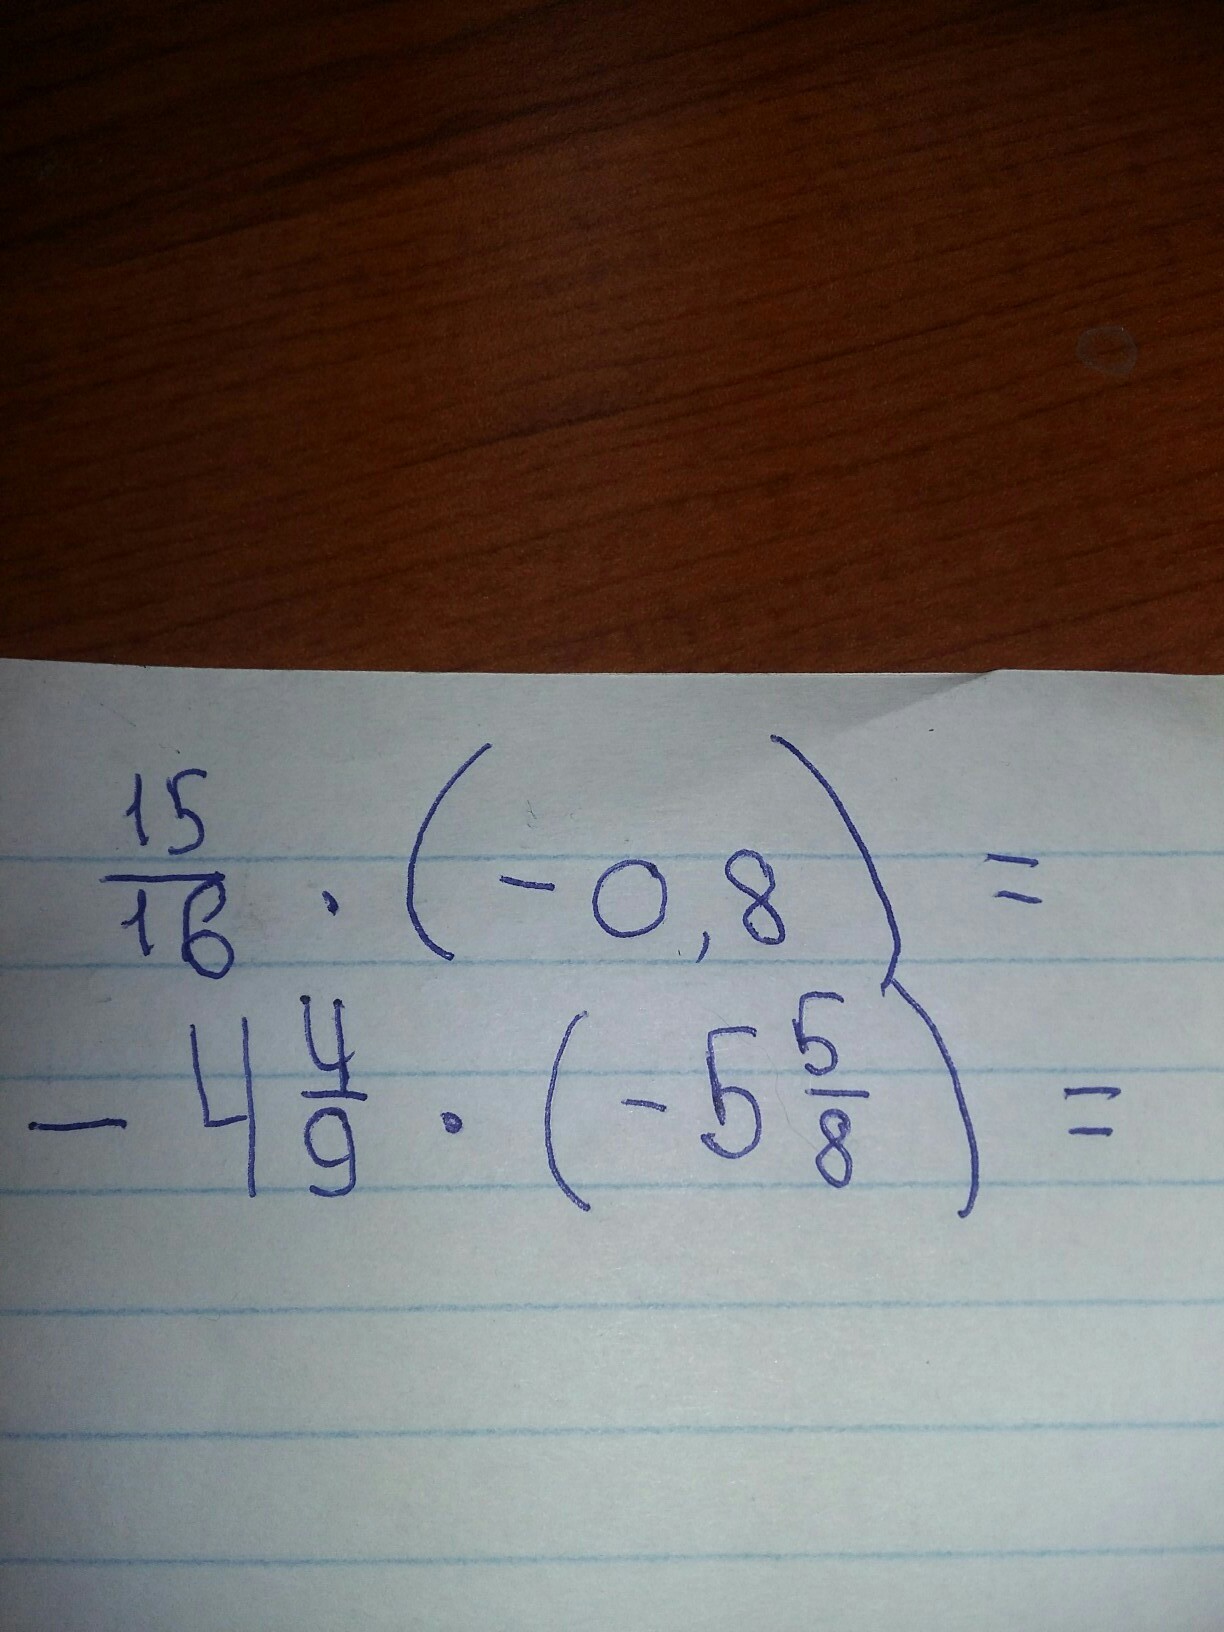 15/16 · (-0,8) =
-4 4/9 · (-5 5/8) =